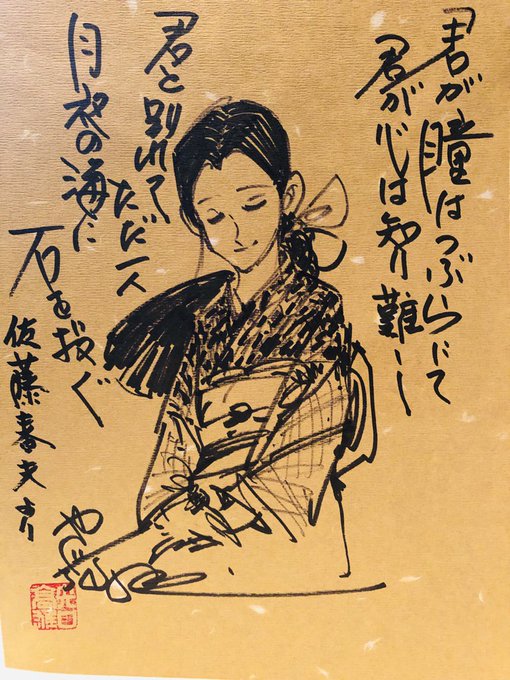 君が瞳はつぶらにて
君が心は知り難し
君と別れて
ただ一人
月夜の海に
石を投ぐ
佐藤春夫より